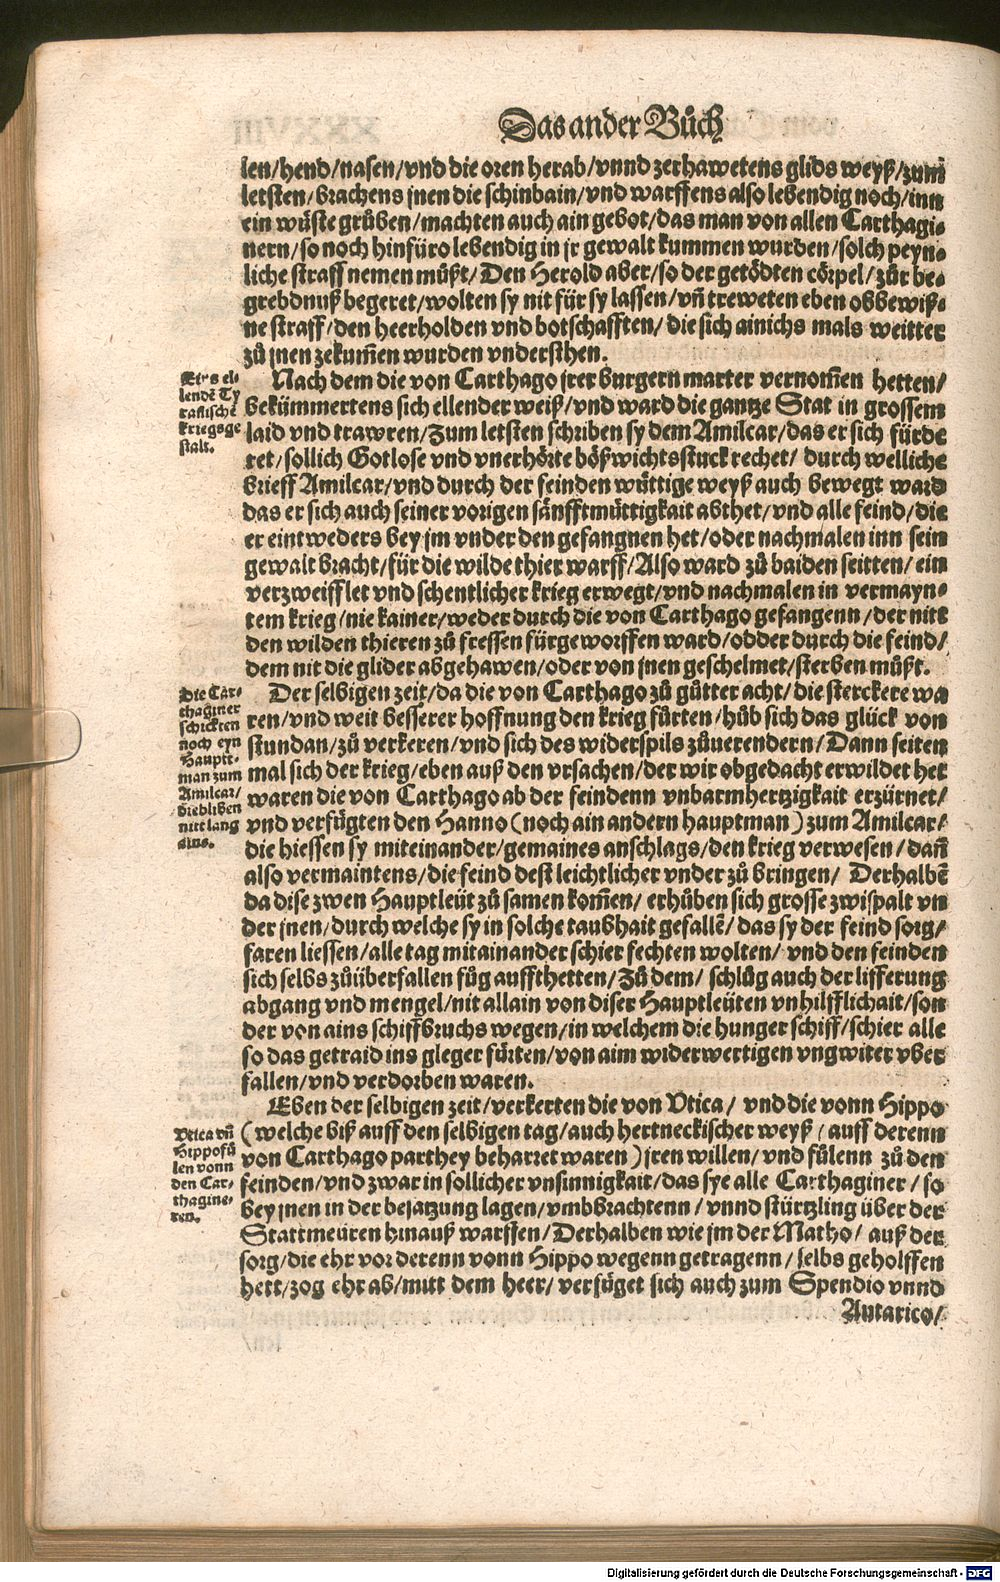 Das ander Bůch
len/hend/nasen/vnd die oren herab/vnnd zerhawetens glids weyß/zum
letsten/brachens jnen die schinbain/vnd warffens also lebendig noch/inn
ein wüste grůben/machten auch ain gebot/das man von allen Carthagi-
nern/so noch hinfüro lebendig in jr gewalt kummen wurden/solch peyn-
liche straff nemen müßt/Den Herold aber/so der getödten cörpel/zůr be-
grebdnuß begeret/wolten sy nit für sy lassen/vñ treweten eben obbewiß-
ne straff/den heerholden vnd botschafften/die sich ainichs mals weitter
zů jnen zekum̃en wurden vndersthen.
Eins el-
lendẽ Ty
rañische
kriegsge
stalt.
Nach dem die von Carthago jrer burgern marter vernom̃en hetten/
bekümmertens sich ellender weiß/vnd ward die gantze Stat in grossem
laid vnd trawren/Zum letsten schriben sy dem Amilcar/das er sich fürde
ret/sollich Gotlose vnd vnerhörte bößwichtsstuck rechet/durch welliche
brieff Amilcar/vnd durch der feinden wüttige weyß auch bewegt ward
das er sich auch seiner vorigen sänfftmüttigkait abthet/vnd alle feind/die
er eintweders bey jm vnder den gefangnen het/oder nachmalen inn sein
gewalt bracht/für die wilde thier warff/Also ward zů baiden seitten/ein
verzweifflet vnd schentlicher krieg erwegt/vnd nachmalen in vermayn-
tem krieg/nie kainer/weder durch die von Carthago gefangenn/der nitt
den wilden thieren zů fressen fürgeworffen ward/odder durch die feind/
dem nit die glider abgehawen/oder von jnen geschelmet/sterben müßt.
Die Car-
thaginer
schickten
noch eyn
Hauptt-
man zum
Amilcar/
die bliben
nitt lang
ains.
Der selbigen zeit/da die von Carthago zů gůtter acht/die sterckere wa
ren/vnd weit besserer hoffnung den krieg fürten/hůb sich das glück von
stundan/zů verkeren/vnd sich des widerspils zůuerendern/Dann seiten
mal sich der krieg/eben auß den vrsachen/der wir obgedacht erwildet het
waren die von Carthago ab der feindenn vnbarmhertzigkait erzürnet/
vnd verfügten den Hanno (noch ain andern hauptman) zum Amilcar/
die hiessen sy miteinander/gemaines anschlags/den krieg verwesen/dañ
also vermaintens/die feind dest leichtlicher vnder zů bringen/ Derhalbẽ
da dise zwen Hauptleüt zů samen kom̃en/ erhůben sich grosse zwispalt vn
der jnen/durch welche sy in solche taubhait gefallẽ/das sy der feind sorg/
faren liessen/alle tag mitainander schier fechten wolten/ vnd den feinden
sich selbs zůüberfallen fůg auffthetten/Zů dem/ schlůg auch der lifferung
abgang vnd mengel/nit allain von diser Hauptleüten vnhilfflichait/son
der von ains schiffbruchs wegen/in welchem die hunger schiff/schier alle
so das getraid ins gleger fürten/von aim widerwertigen vngwiter vber
fallen/vnd verdorben waren.
Vtica vñ
Hippo fü
len vonn
den Car-
thagine-
ren.
Eben der selbigen zeit/verkerten die von Vtica/ vnd die vonn Hippo
(welche biß auff den selbigen tag/auch hertneckischer weyß/auff derenn
von Carthago parthey beharret waren) jren willen/vnd fülenn zů den
feinden/vnd zwar in sollicher vnsinnigkait/das sye alle Carthaginer/so
bey jnen in der besatzung lagen/vmbbrachtenn/vnnd stürtzling über der
Stattmeüren hinauß warffen/Derhalben wie jm der Matho/auß der
sorg/die ehr vor derenn vonn Hippo wegenn getragenn/selbs geholffen
hett/zog ehr ab/mitt dem heer/verfüget sich auch zum Spendio vnnd
Autarico/
Digitalisierung gefördert durch die Deutsche Forschungsgemeinschaft - DFG